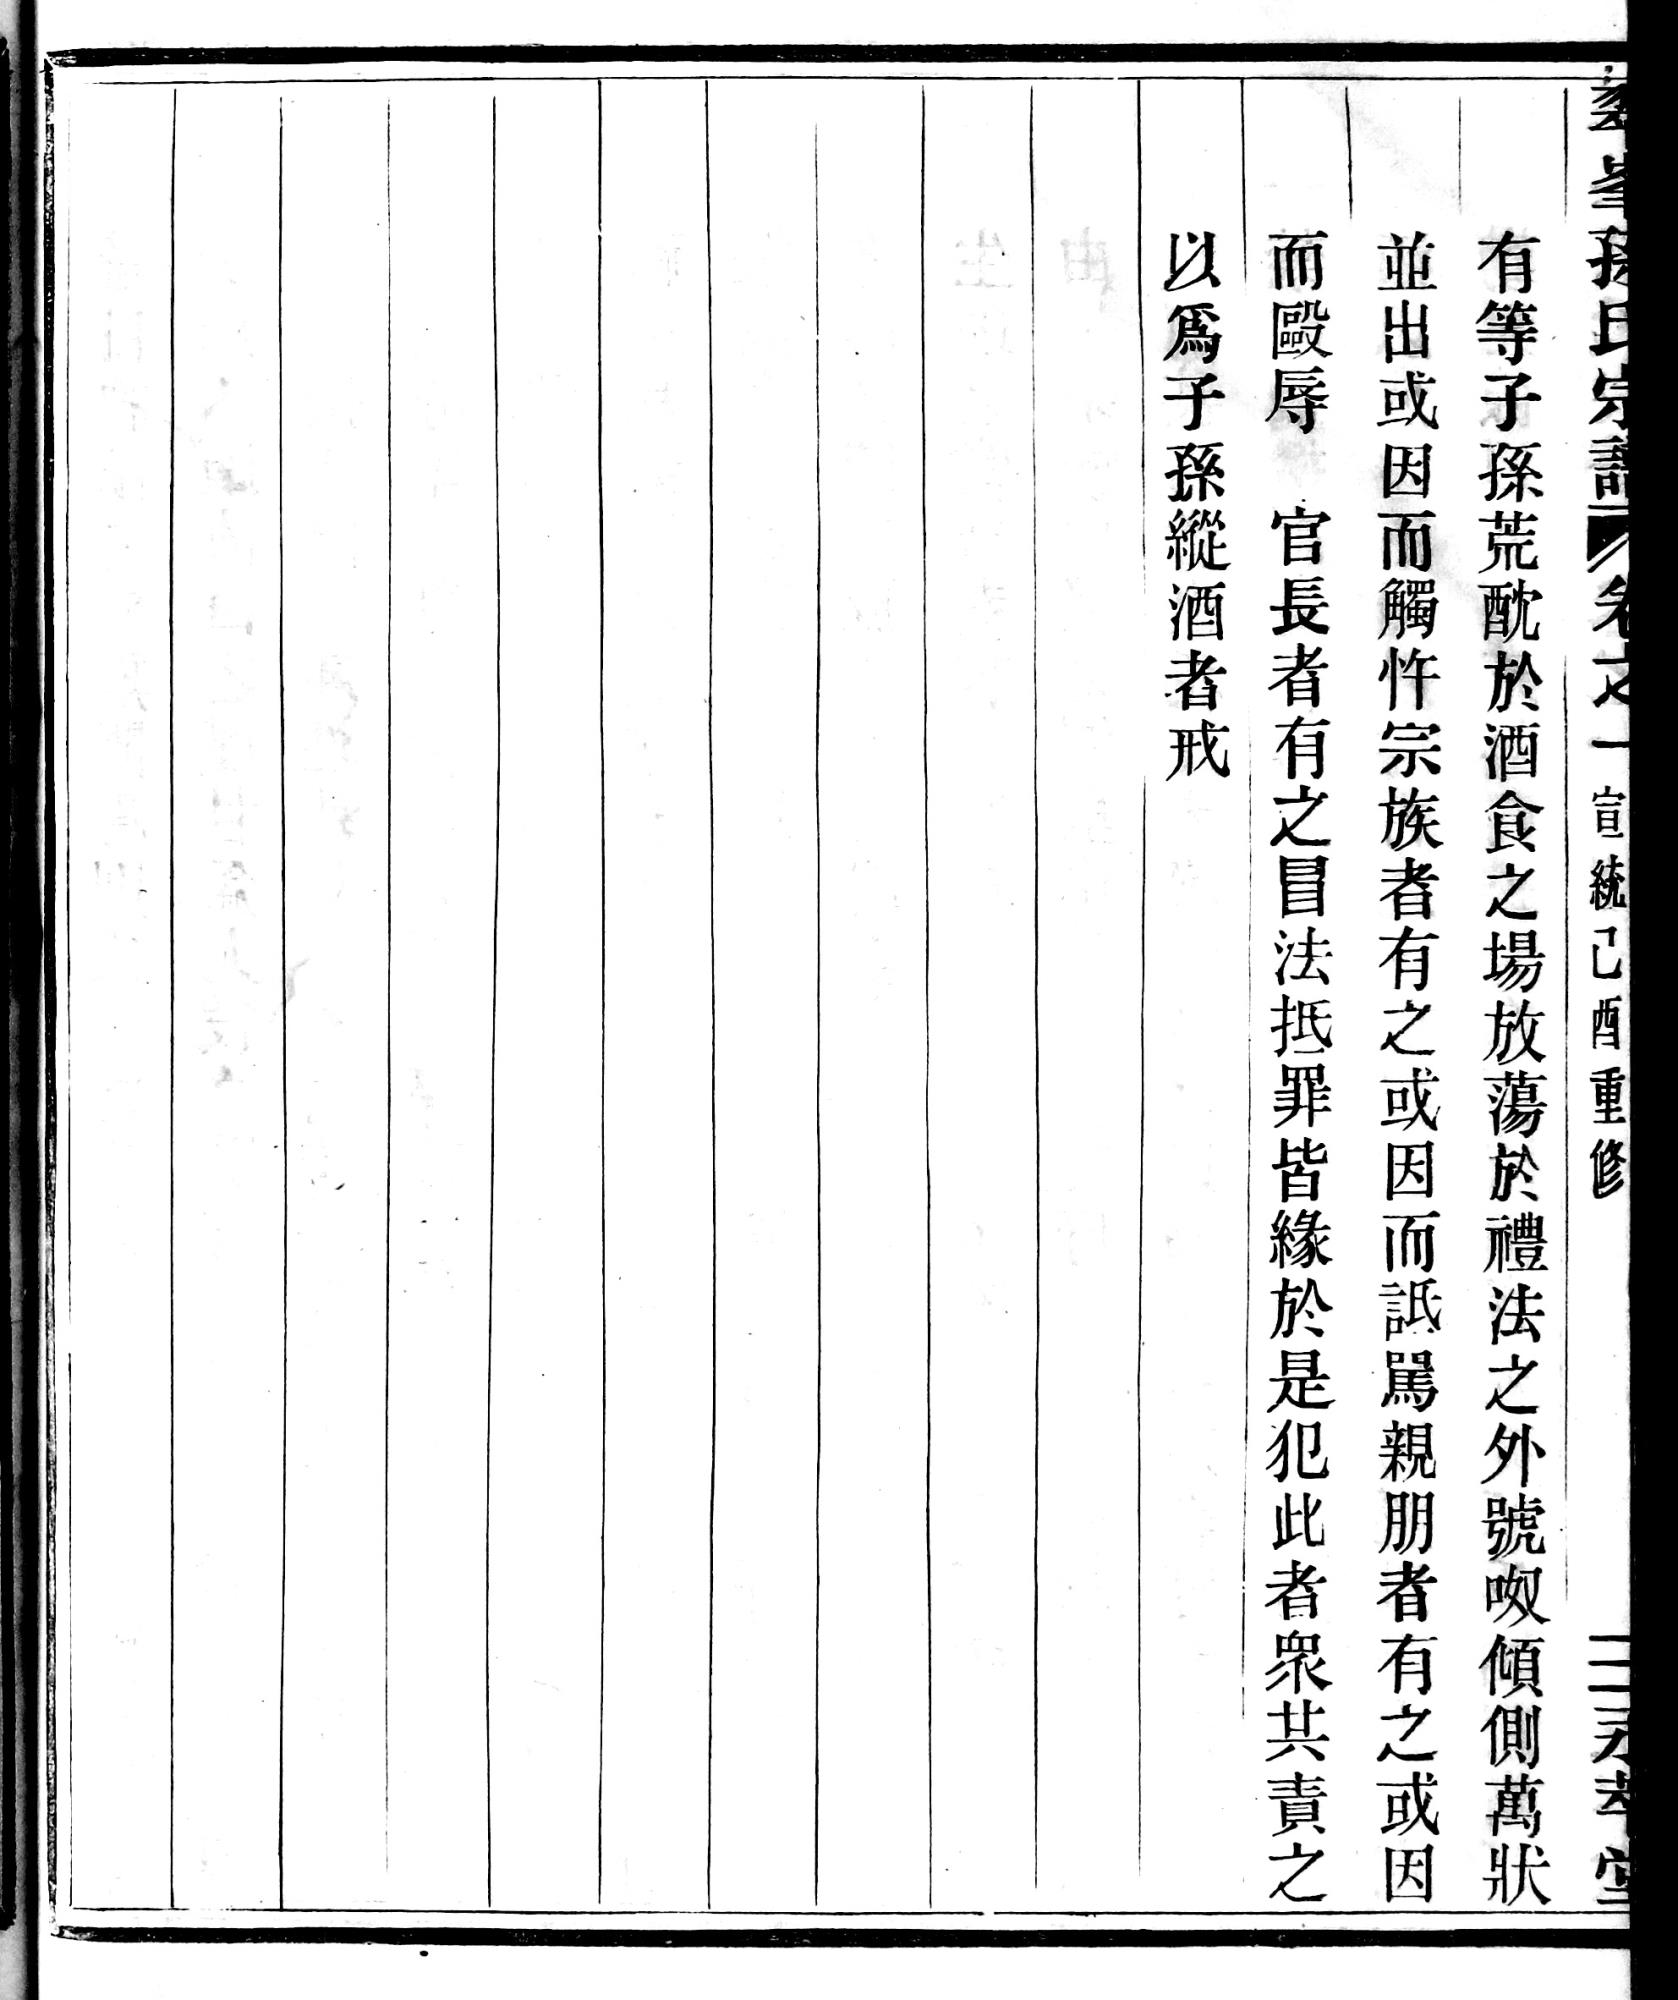 孫氏宗譜 卷之一 宣統己酉重修 二 孝堂
有等子孫荒酖於酒食之場放蕩於禮法之外號呶傾側萬狀
並出或因而觸忤宗族者有之或因而詆罵親朋者有之或因
而毆辱 官長者有之冒法抵罪皆緣於是犯此者眾共責之
以爲子孫縱酒者戒